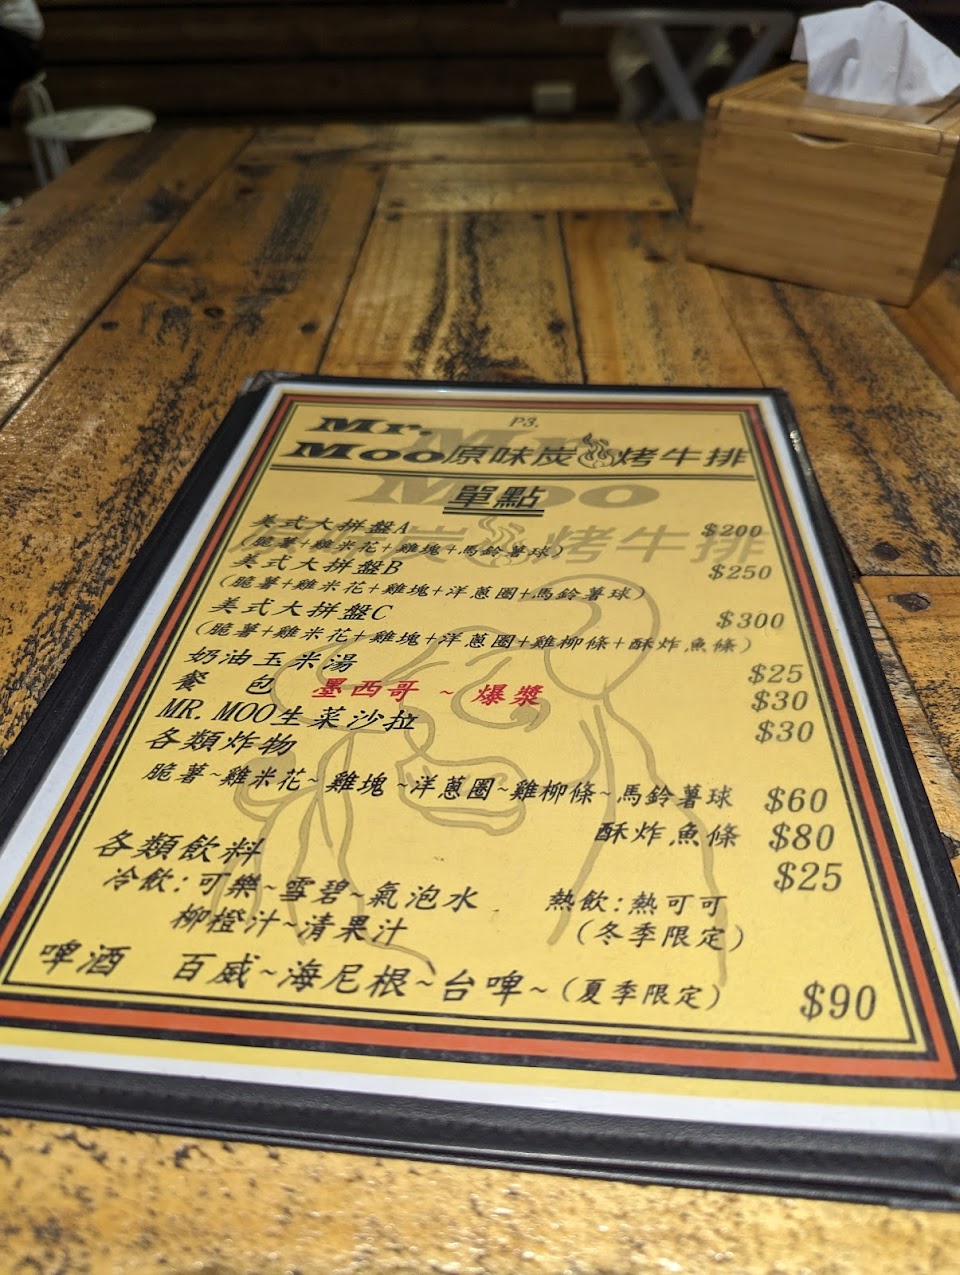 P3.
Mr.
Moo原味炭烤牛排
單點
美式大拼盤A $200
(脆薯+雞米花+雞塊+馬鈴薯球)
美式大拼盤B $250
(脆薯+雞米花+雞塊+洋蔥圈+馬鈴薯球)
美式大拼盤C $300
(脆薯+雞米花+雞塊+洋蔥圈+雞柳條+酥炸魚條)
奶油玉米湯 $25
餐 包 墨西哥~爆漿 $30
MR.MOO生菜沙拉 $30
各類炸物
脆薯~雞米花~雞塊~洋蔥圈~雞柳條~馬鈴薯球 $60
酥炸魚條 $80
各類飲料 $25
冷飲:可樂~雪碧~氣泡水 熱飲:熱可可
柳橙汁~清果汁 (冬季限定)
啤酒 百威~海尼根~台啤~(夏季限定) $90